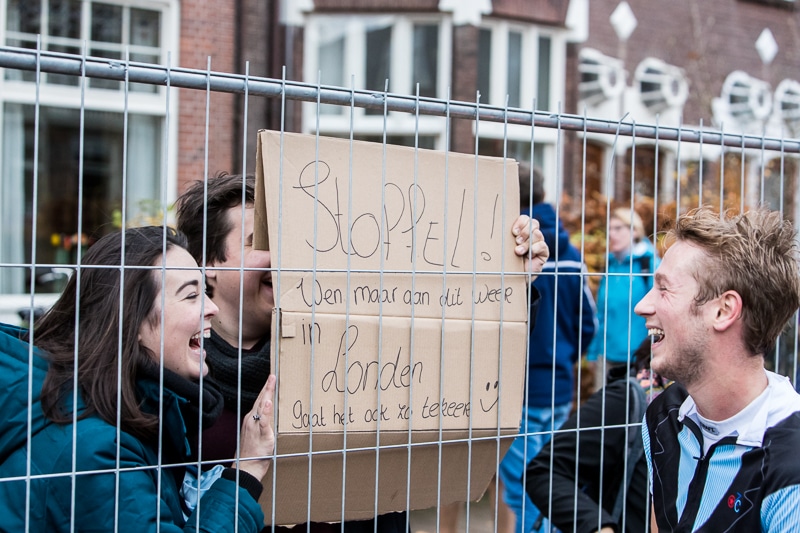 Stoffel!
Wen maar aan dit weer
in
Londen
gaat het ook zo tekeer